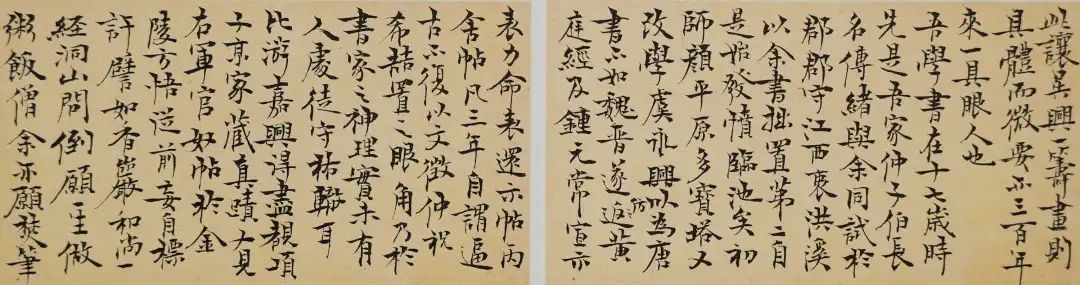 此讓吳興一籌畫則
具體而微要亦三百年
來一具眼人也
吾學書在十七歲時
先是吾家仲子伯長
名傳緒與余同試於
郡郡守江西衷洪溪
以余書拙置第二自
是始發憤臨池矣初
師顏平原多寶塔又
改學虞永興以為唐
書不如魏晉遂仿黃
庭經及鍾元常宣示
表力命表還示帖丙
舍帖凡三年自謂逼
古不復以文徵仲祝
希喆置之眼角乃於
書家之神理實未有
入處徒守格轍耳
比游嘉興得盡覩項
子京家藏真蹟又見
右軍官奴帖於金
陵方悟從前妄自標
許譬如香巖和尚一
經洞山問倒願一生做
粥飯僧余亦願焚筆